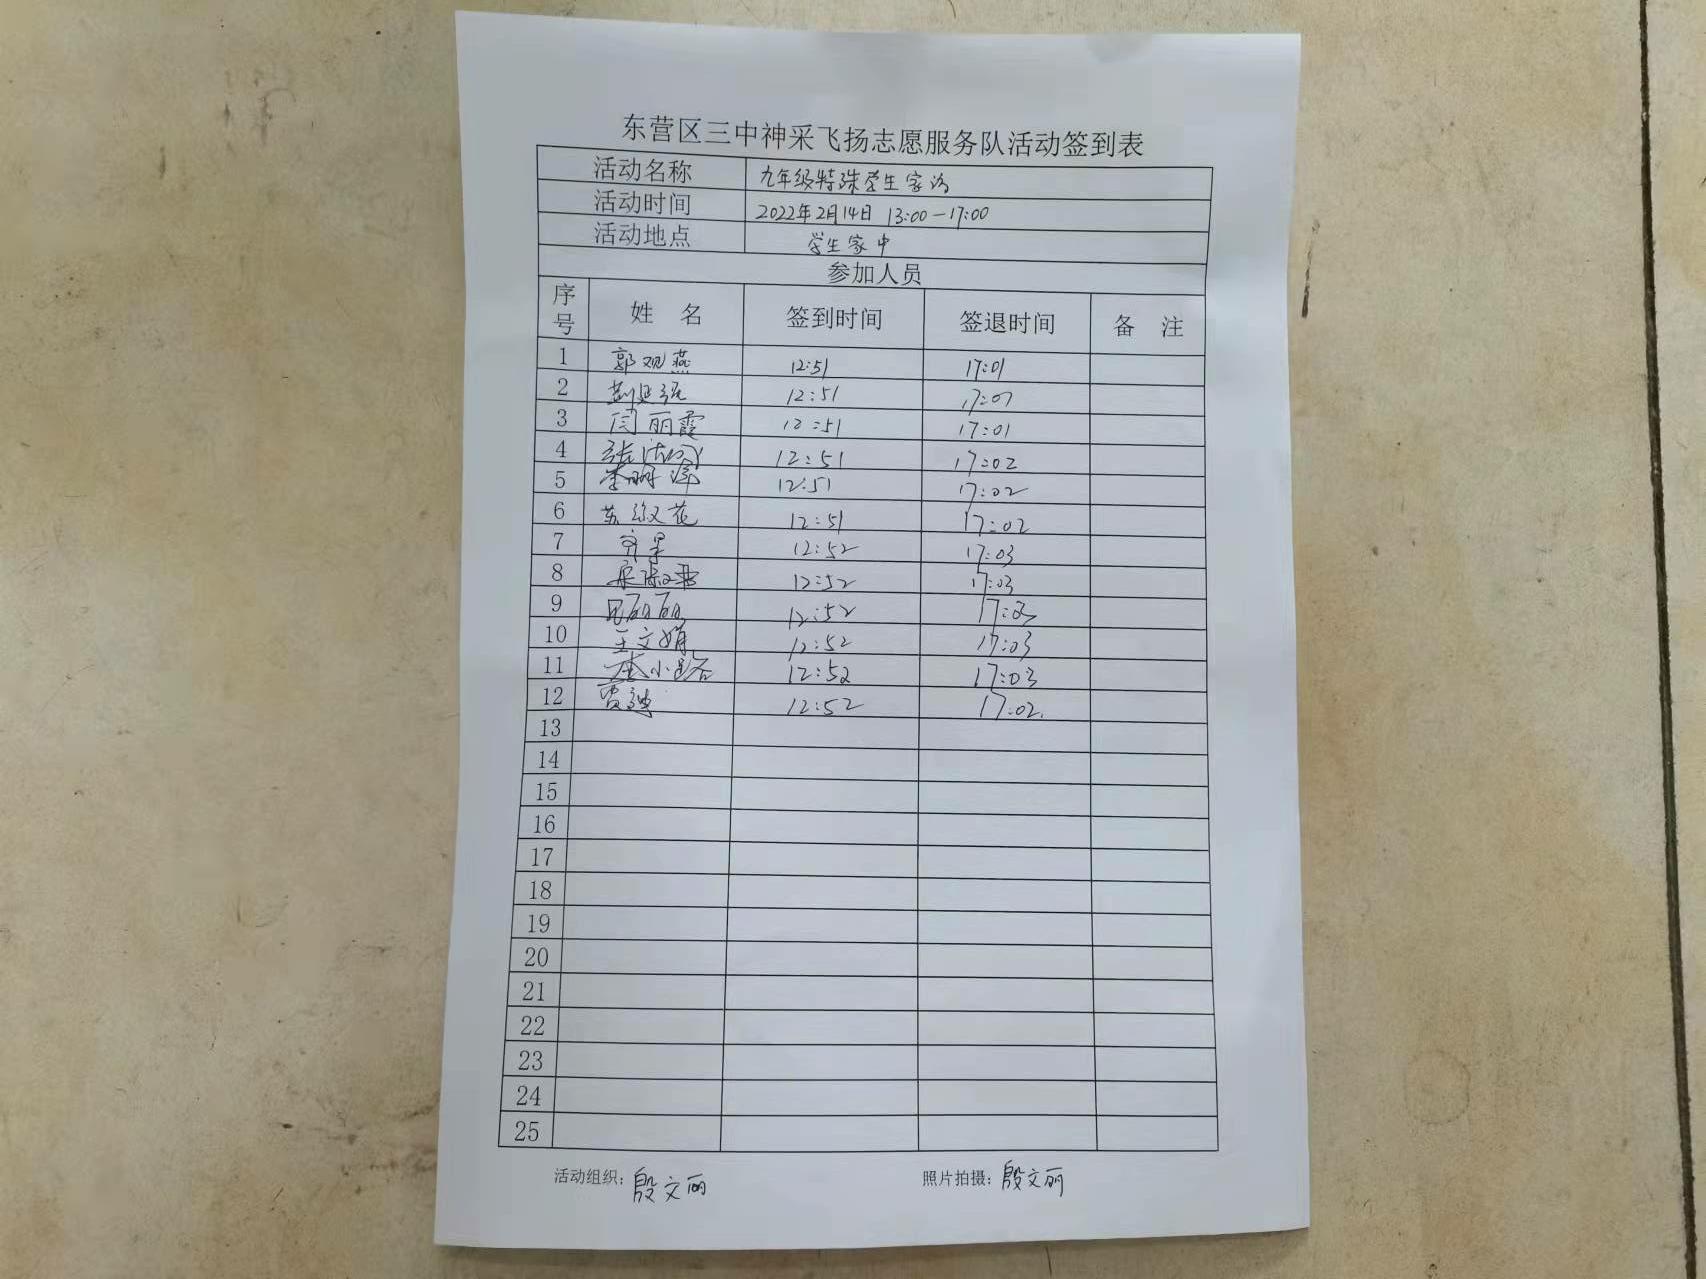 东营区三中神采飞扬志愿服务队活动签到表
活动名称 九年级特殊学生家访
活动时间 2022年2月14日 13:00-17:00
活动地点 学生家中
参加人员
序号 姓 名 签到时间 签退时间 备 注
1 郭观燕 12:51 17:01
2 12:51 17:01
3 闫丽霞 12:51 17:01
4 12:51 17:02
5 12:51 17:02
6 12:51 17:02
7 12:52 17:03
8 12:52 17:03
9 12:52 17:03
10 王文娟 12:52 17:03
11 12:52 17:03
12 12:52 17:02.
13
14
15
16
17
18
19
20
21
22
23
24
25
活动组织: 殷文丽 照片拍摄: 殷文丽